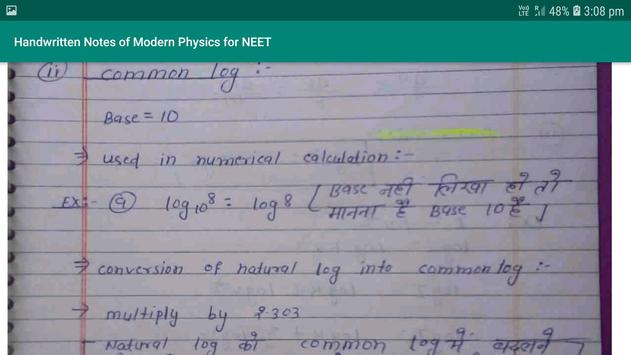 Vo) LTE R 48% 3:08 pm
Handwritten Notes of Modern Physics for NEET
(ii) common log :-
Base = 10
⇒ used in numerical calculation :-
Ex:- (a) log₁₀8 = log 8 [ Base नही लिखा हो तो
मानना है Base 10 है ]
⇒ conversion of natural log into common log :-
→ multiply by 2.303
Natural log को common log में बदलने